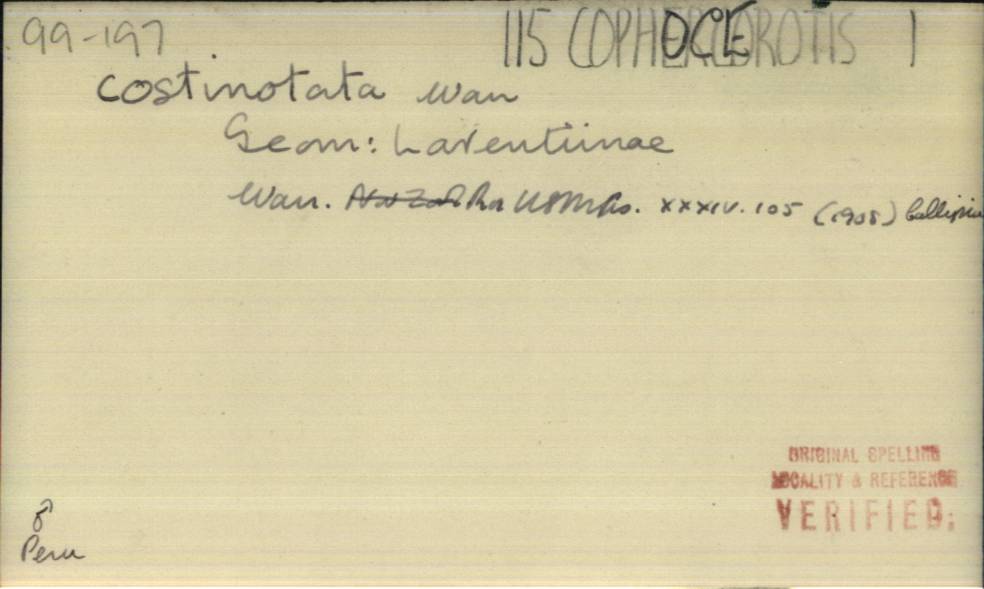 99-197 115 COPHEROTIS 1
OCLE
costinotata Warr
Geom: Larentiinae
Warr. Pro USMus. XXXIV. 105 (1908)
ORIGINAL SPELLING
LOCALITY & REFERENCE
VERIFIED.
♂
Peru